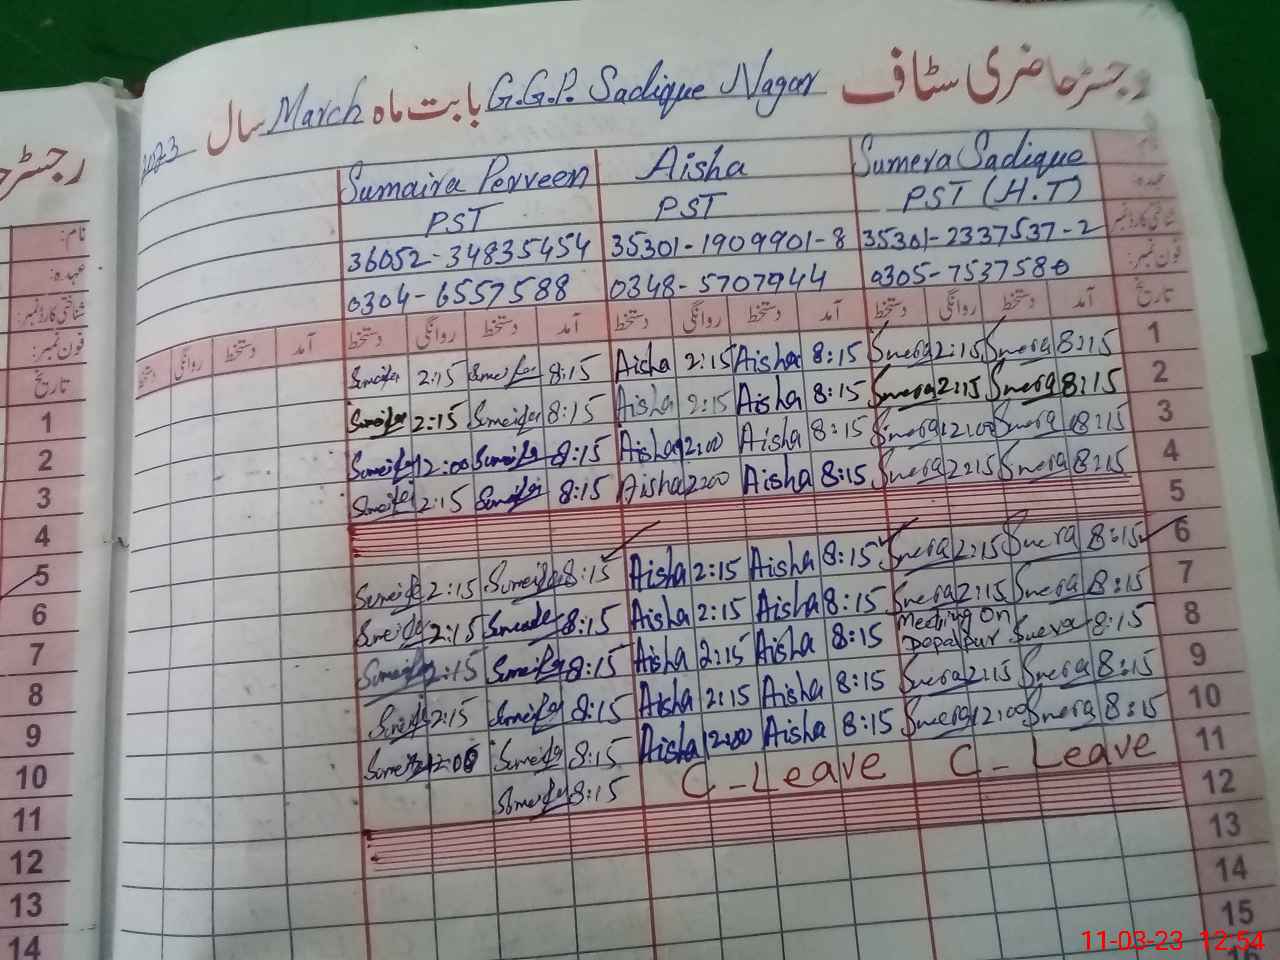 رجسٹر حاضری سٹاف G.G.P.S Sadique Nagar بابت ماہ March سال 2023
Sumaira Perveen Aisha Sumera Sadique
PST PST PST (H.T) عہدہ:
36052-34835454 35301-1909901-8 35301-2337537-2 شناختی کارڈ نمبر:
0304-6557588 0348-5707944 0305-7537580 فون نمبر:
دستخط روانگی دستخط آمد دستخط روانگی دستخط آمد دستخط روانگی دستخط آمد دستخط روانگی دستخط آمد تاریخ
2:15 8:15 Aisha 2:15 Aisha 8:15 Sumera 2:15 Sumera 8:15 1
2:15 8:15 Aisha 2:15 Aisha 8:15 Sumera 2:15 Sumera 8:15 2
12:00 8:15 Aisha 12:00 Aisha 8:15 Sumera 12:00 Sumera 8:15 3
2:15 8:15 Aisha Aisha 8:15 Sumera 2:15 Sumera 8:15 4
5
2:15 8:15 Aisha 2:15 Aisha 8:15 Sumera 2:15 Sumera 8:15 6
2:15 8:15 Aisha 2:15 Aisha 8:15 Sumera 2:15 Sumera 8:15 7
2:15 8:15 Aisha 2:15 Aisha 8:15 Meeting on Depalpur Sumera 8:15 8
2:15 8:15 Aisha 2:15 Aisha 8:15 Sumera 2:15 Sumera 8:15 9
12:00 8:15 Aisha 12:00 Aisha 8:15 Sumera 12:00 Sumera 8:15 10
8:15 C-Leave C-Leave 11
12
13
14
15
16
رجسٹر
نام:
عہدہ:
شناختی کارڈ نمبر:
فون نمبر:
تاریخ
1
2
3
4
5
6
7
8
9
10
11
12
13
14
11-03-23 12:54